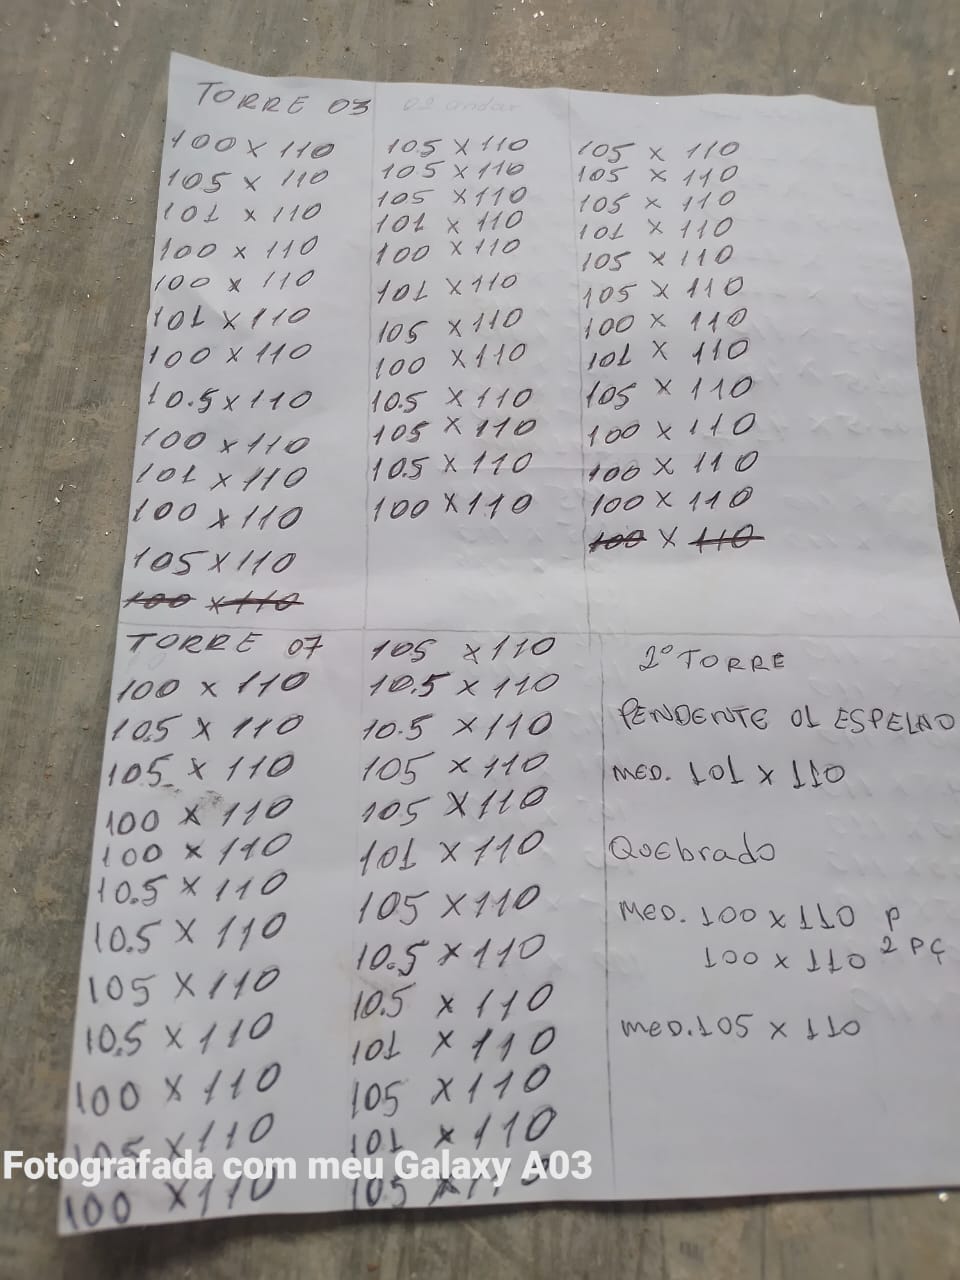 TORRE 03
100 x 110
105 x 110
101 x 110
100 x 110
100 x 110
101 x 110
100 x 110
10.5 x 110
100 x 110
101 x 110
100 x 110
105 x 110
100 x 110
02 andar
105 x 110
105 x 110
105 x 110
101 x 110
100 x 110
101 x 110
105 x 110
100 x 110
10.5 x 110
105 x 110
10.5 x 110
100 x 110
105 x 110
105 x 110
105 x 110
101 x 110
105 x 110
105 x 110
100 x 110
101 x 110
105 x 110
100 x 110
100 x 110
100 x 110
100 x 110
TORRE 07
100 x 110
105 x 110
105 x 110
100 x 110
100 x 110
10.5 x 110
10.5 x 110
105 x 110
10.5 x 110
100 x 110
105 x 110
100 x 110
105 x 110
10.5 x 110
10.5 x 110
105 x 110
105 x 110
101 x 110
105 x 110
10.5 x 110
10.5 x 110
101 x 110
105 x 110
101 x 110
105 x 110
2º TORRE
PENDENTE 01 ESPELHO
MED. 101 x 110
QUEbrado
MED. 100 x 110 P
100 x 110 2 PÇ
MED. 105 x 110
Fotografada com meu Galaxy A03